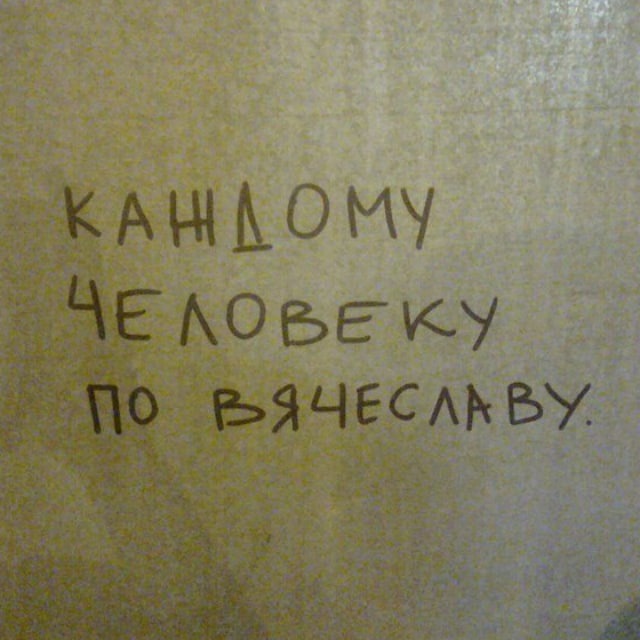 КАЖДОМУ
ЧЕЛОВЕКУ
ПО ВЯЧЕСЛАВУ.